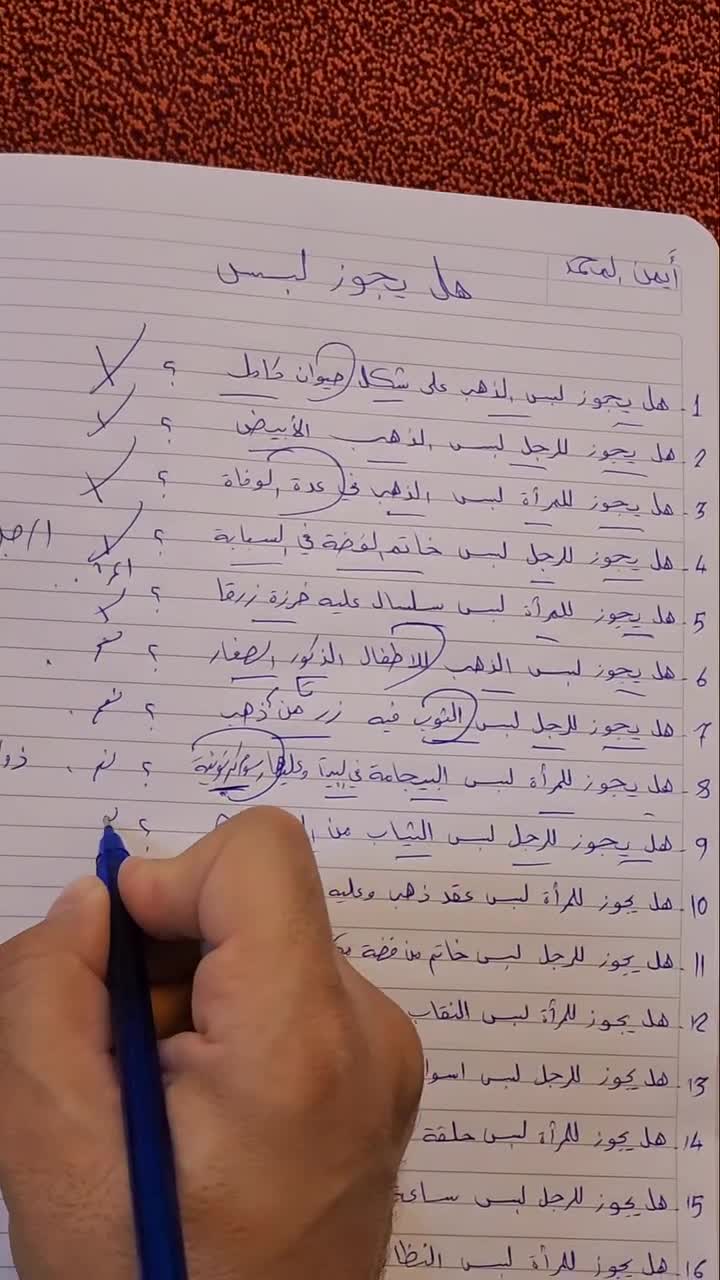 أيمن المحمد
هل يجوز لبس
1. هل يجوز لبس الذهب على شكل حيوان كامل ؟ لا
2. هل يجوز للرجل لبس الذهب الأبيض ؟ لا
3. هل يجوز للمرأة لبس الذهب في عدة الوفاة ؟ لا
4. هل يجوز للرجل لبس خاتم الفضة في السبابة ؟ لا
5. هل يجوز للمرأة لبس سلسال عليه خرزة زرقا ؟ لا
6. هل يجوز لبس الذهب للاطفال الذكور الصغار ؟ نعم .
7. هل يجوز للرجل لبس الثوب فيه زر من ذهب ؟ نعم .
8. هل يجوز للمرأة لبس البيجامة في البيت وعليها رسوم كرتونية ؟ نعم .
9. هل يجوز للرجل لبس الثياب من
10. هل يجوز للمرأة لبس عقد ذهب وعليه
11. هل يجوز للرجل لبس خاتم من فضة
12. هل يجوز للمرأة لبس النقاب
13. هل يجوز للرجل لبس اسوا
14. هل يجوز للمرأة لبس حلقة
15. هل يجوز للرجل لبس ساعة
16. هل يجوز للمرأة لبس النظا